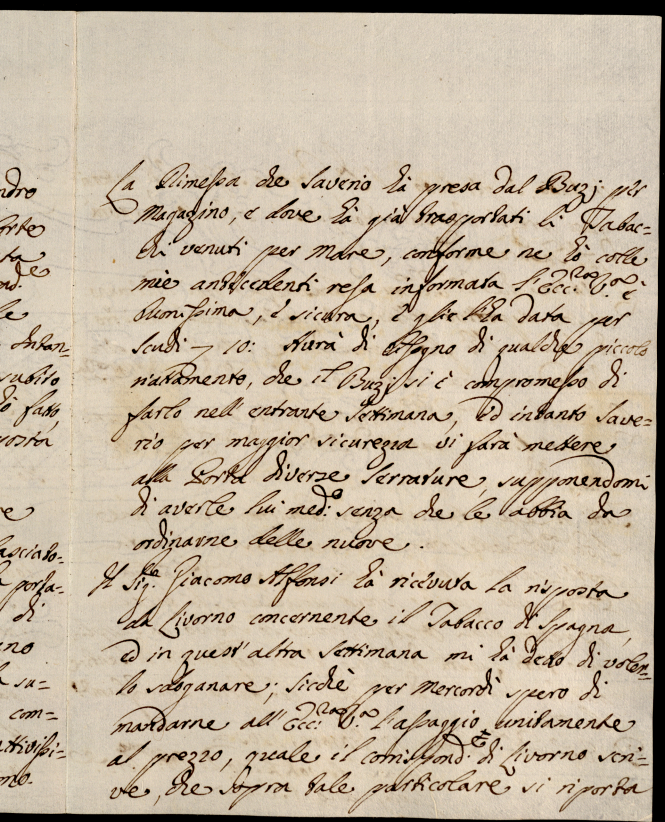 ndro
orte
ta
end.e
le
Intan-
subito
fatto,
posta
e
lasciato-
porta-
di
ano
su-
com-
ttivissi-
mo.
La Rimessa che Saverio hà presa dal Buzj per
Magazino, e dove hà già trasportati li Tabac-
chi venuti per Mare, conforme ne hò colle
mie antecedenti resa informata l'Ecc.za V.ra è
buonissima, è sicura, è glie l'hà data per
scudi 10: Averà di bisogno di qualche piccolo
riattamento, che il Buzj si è compromesso di
farlo nell'entrante Settimana, ed intanto Save-
rio per maggior sicurezza vi farà mettere
alla Porta diverse Serrature, supponendomi
di averle lui med.o senza che le abbia da
ordinarne delle nuove.
Il Sig.re Giacomo Alfonsi hà ricevuta la risposta
da Livorno concernente il Tabacco di Spagna,
ed in quest'altra Settimana mi hà detto di voler-
lo sdoganare; sicchè per Mercordì spero di
mandarne all'Ecc.za V.ra l'assaggio unitamente
al prezzo, quale il corrispond.te di Livorno scri-
ve, che sopra tale particolare si riporta